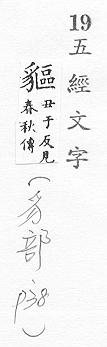 19五經文字
貙丑于反見
春秋傳
(豸部 p38)